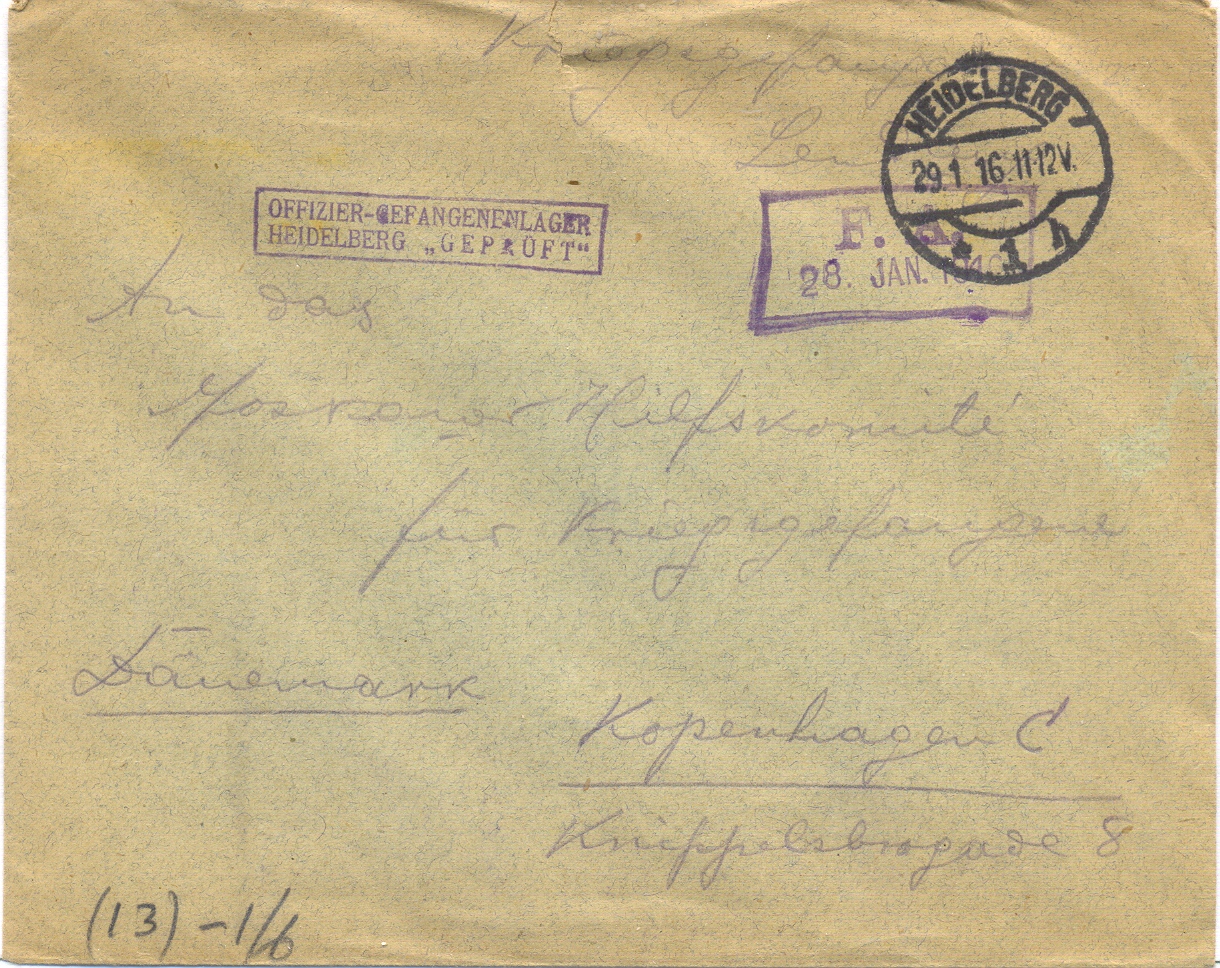 Kriegsgefangen
HEIDELBERG
29.1.16.11-12V.
* 1 h
OFFIZIER-GEFANGENENLAGER
HEIDELBERG „GEPRÜFT“
F. A.
28. JAN. 1916
An das
Moskauer Hilfskomité
für Kriegsgefangene
Dänemark
Kopenhagen C
Knippelsbrogade 8
(13) - 1/6